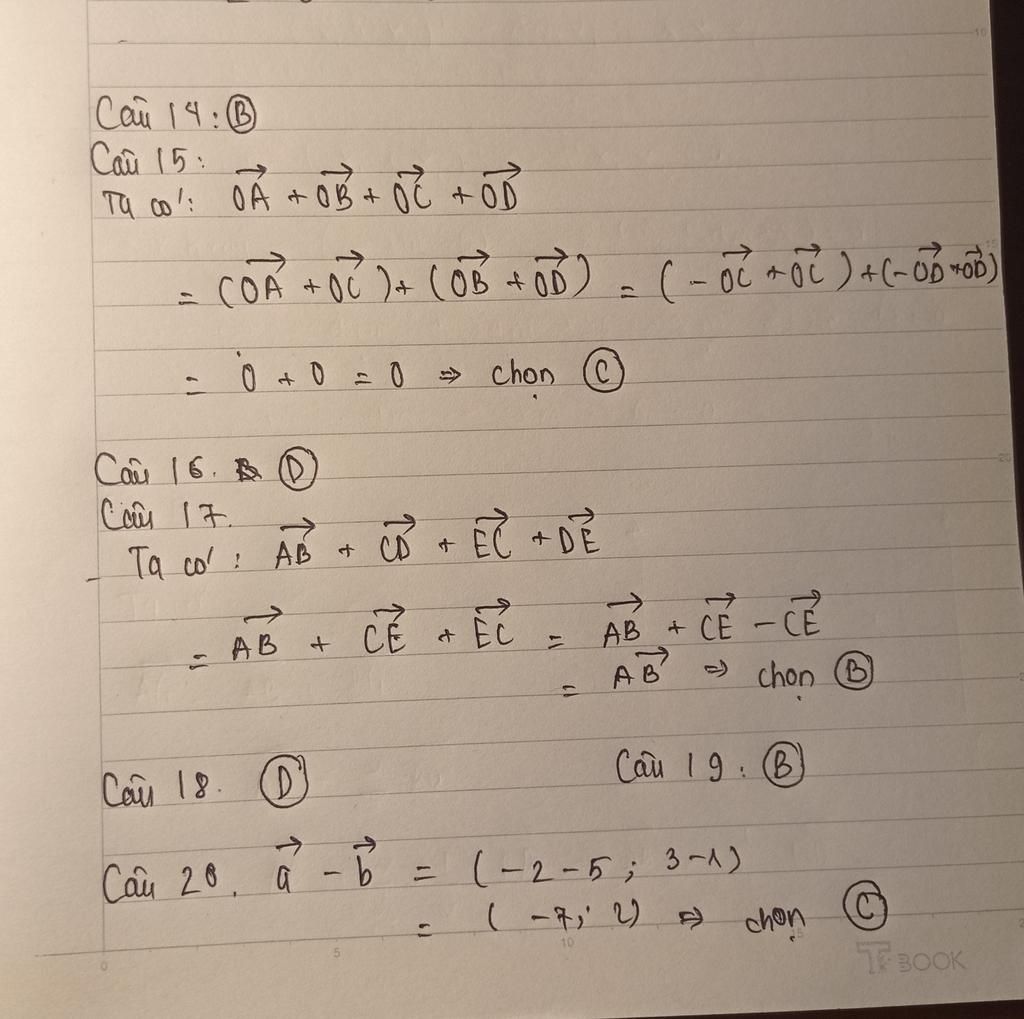 Câu 14: B
Câu 15:
Ta có: OA + OB + OC + OD
= (OA + OC) + (OB + OD) = (-OC + OC) + (-OD + OD)
= 0 + 0 = 0 ⇒ chọn C
Câu 16. D
Câu 17.
Ta có: AB + CD + EC + DE
= AB + CE + EC = AB + CE - CE
= AB ⇒ chọn B
Câu 18. D
Câu 19: B
Câu 20. a - b = (-2-5; 3-1)
= (-7; 2) ⇒ chọn C
0 5 10 15
10
15
20
BOOK